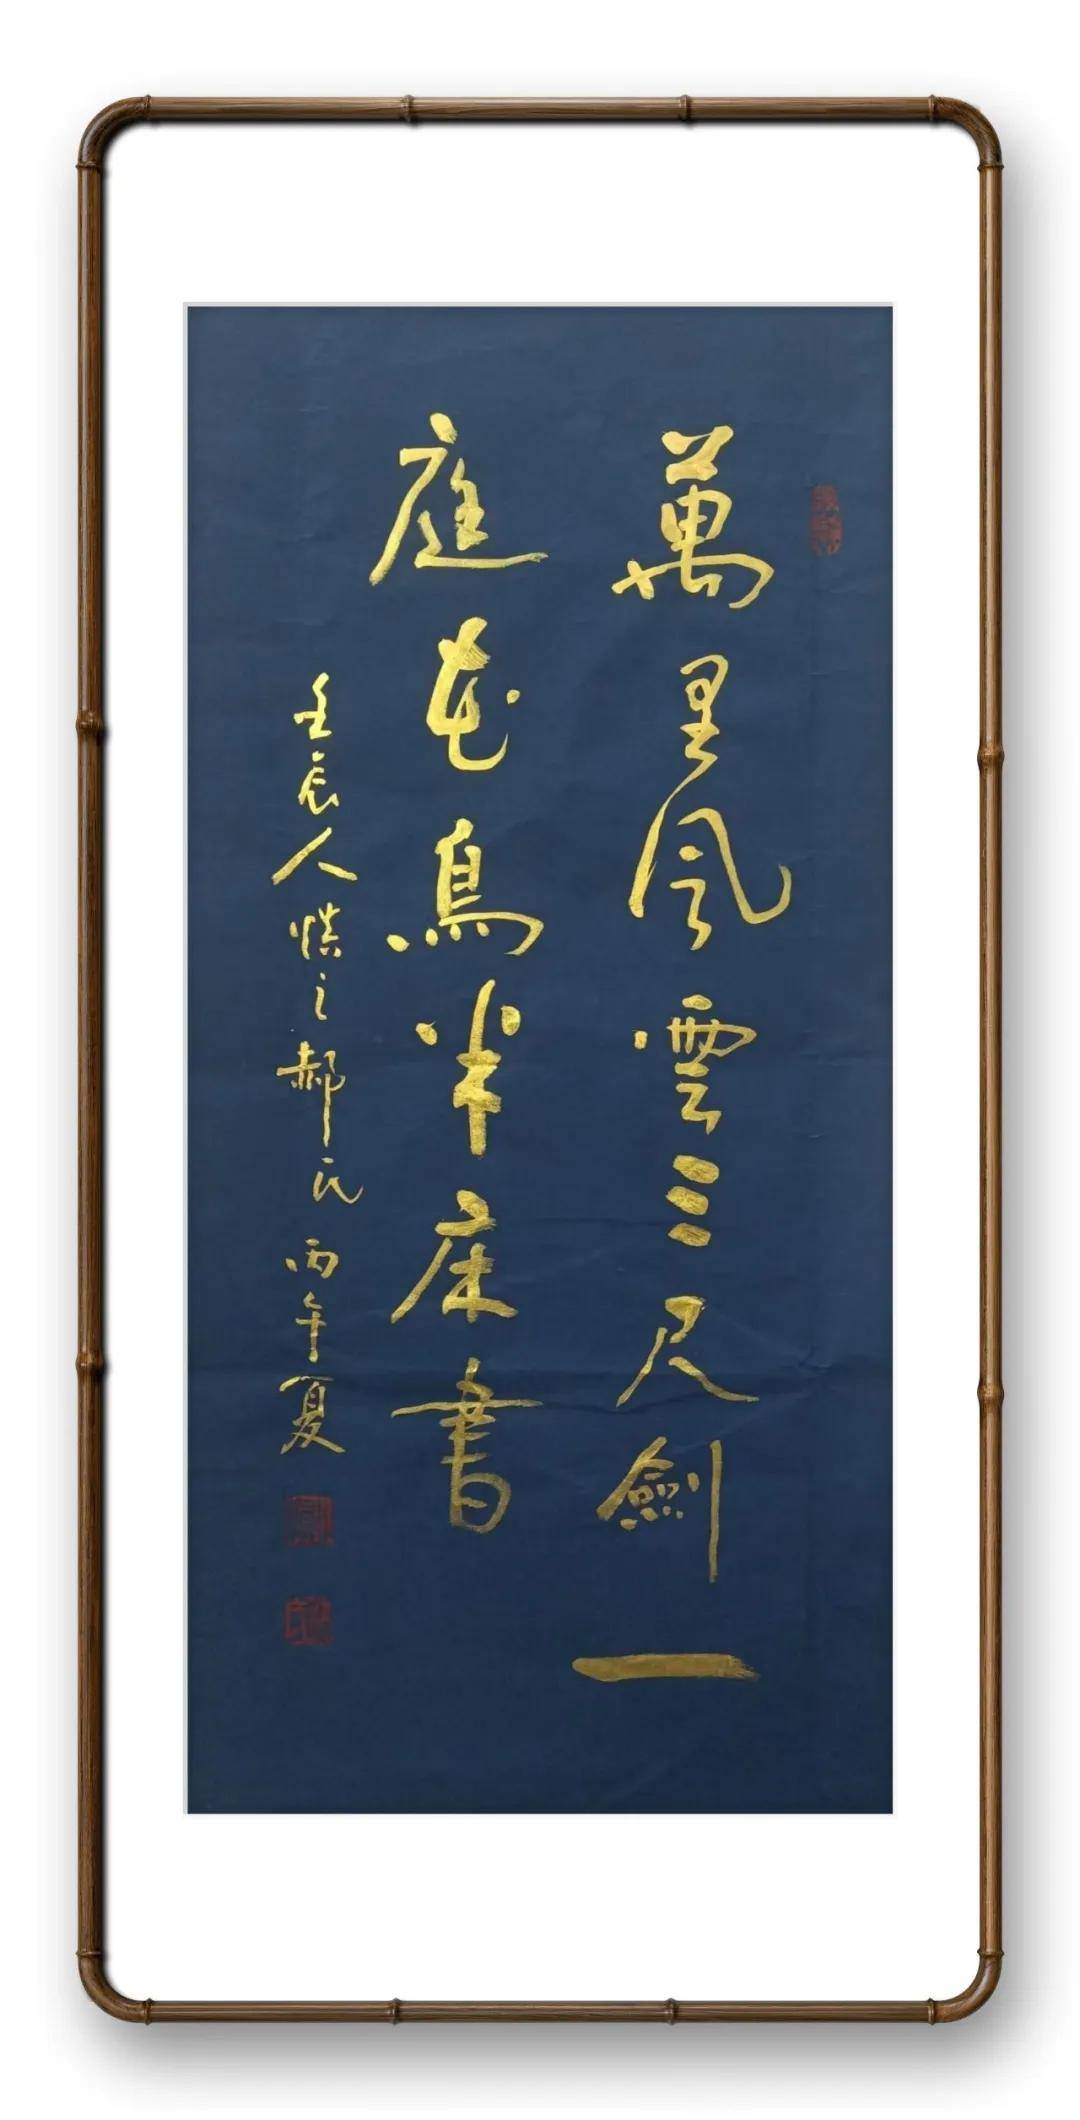 萬里風雲三尺劍一
庭花鳥半床書
壬辰人慎之郝氏丙午夏